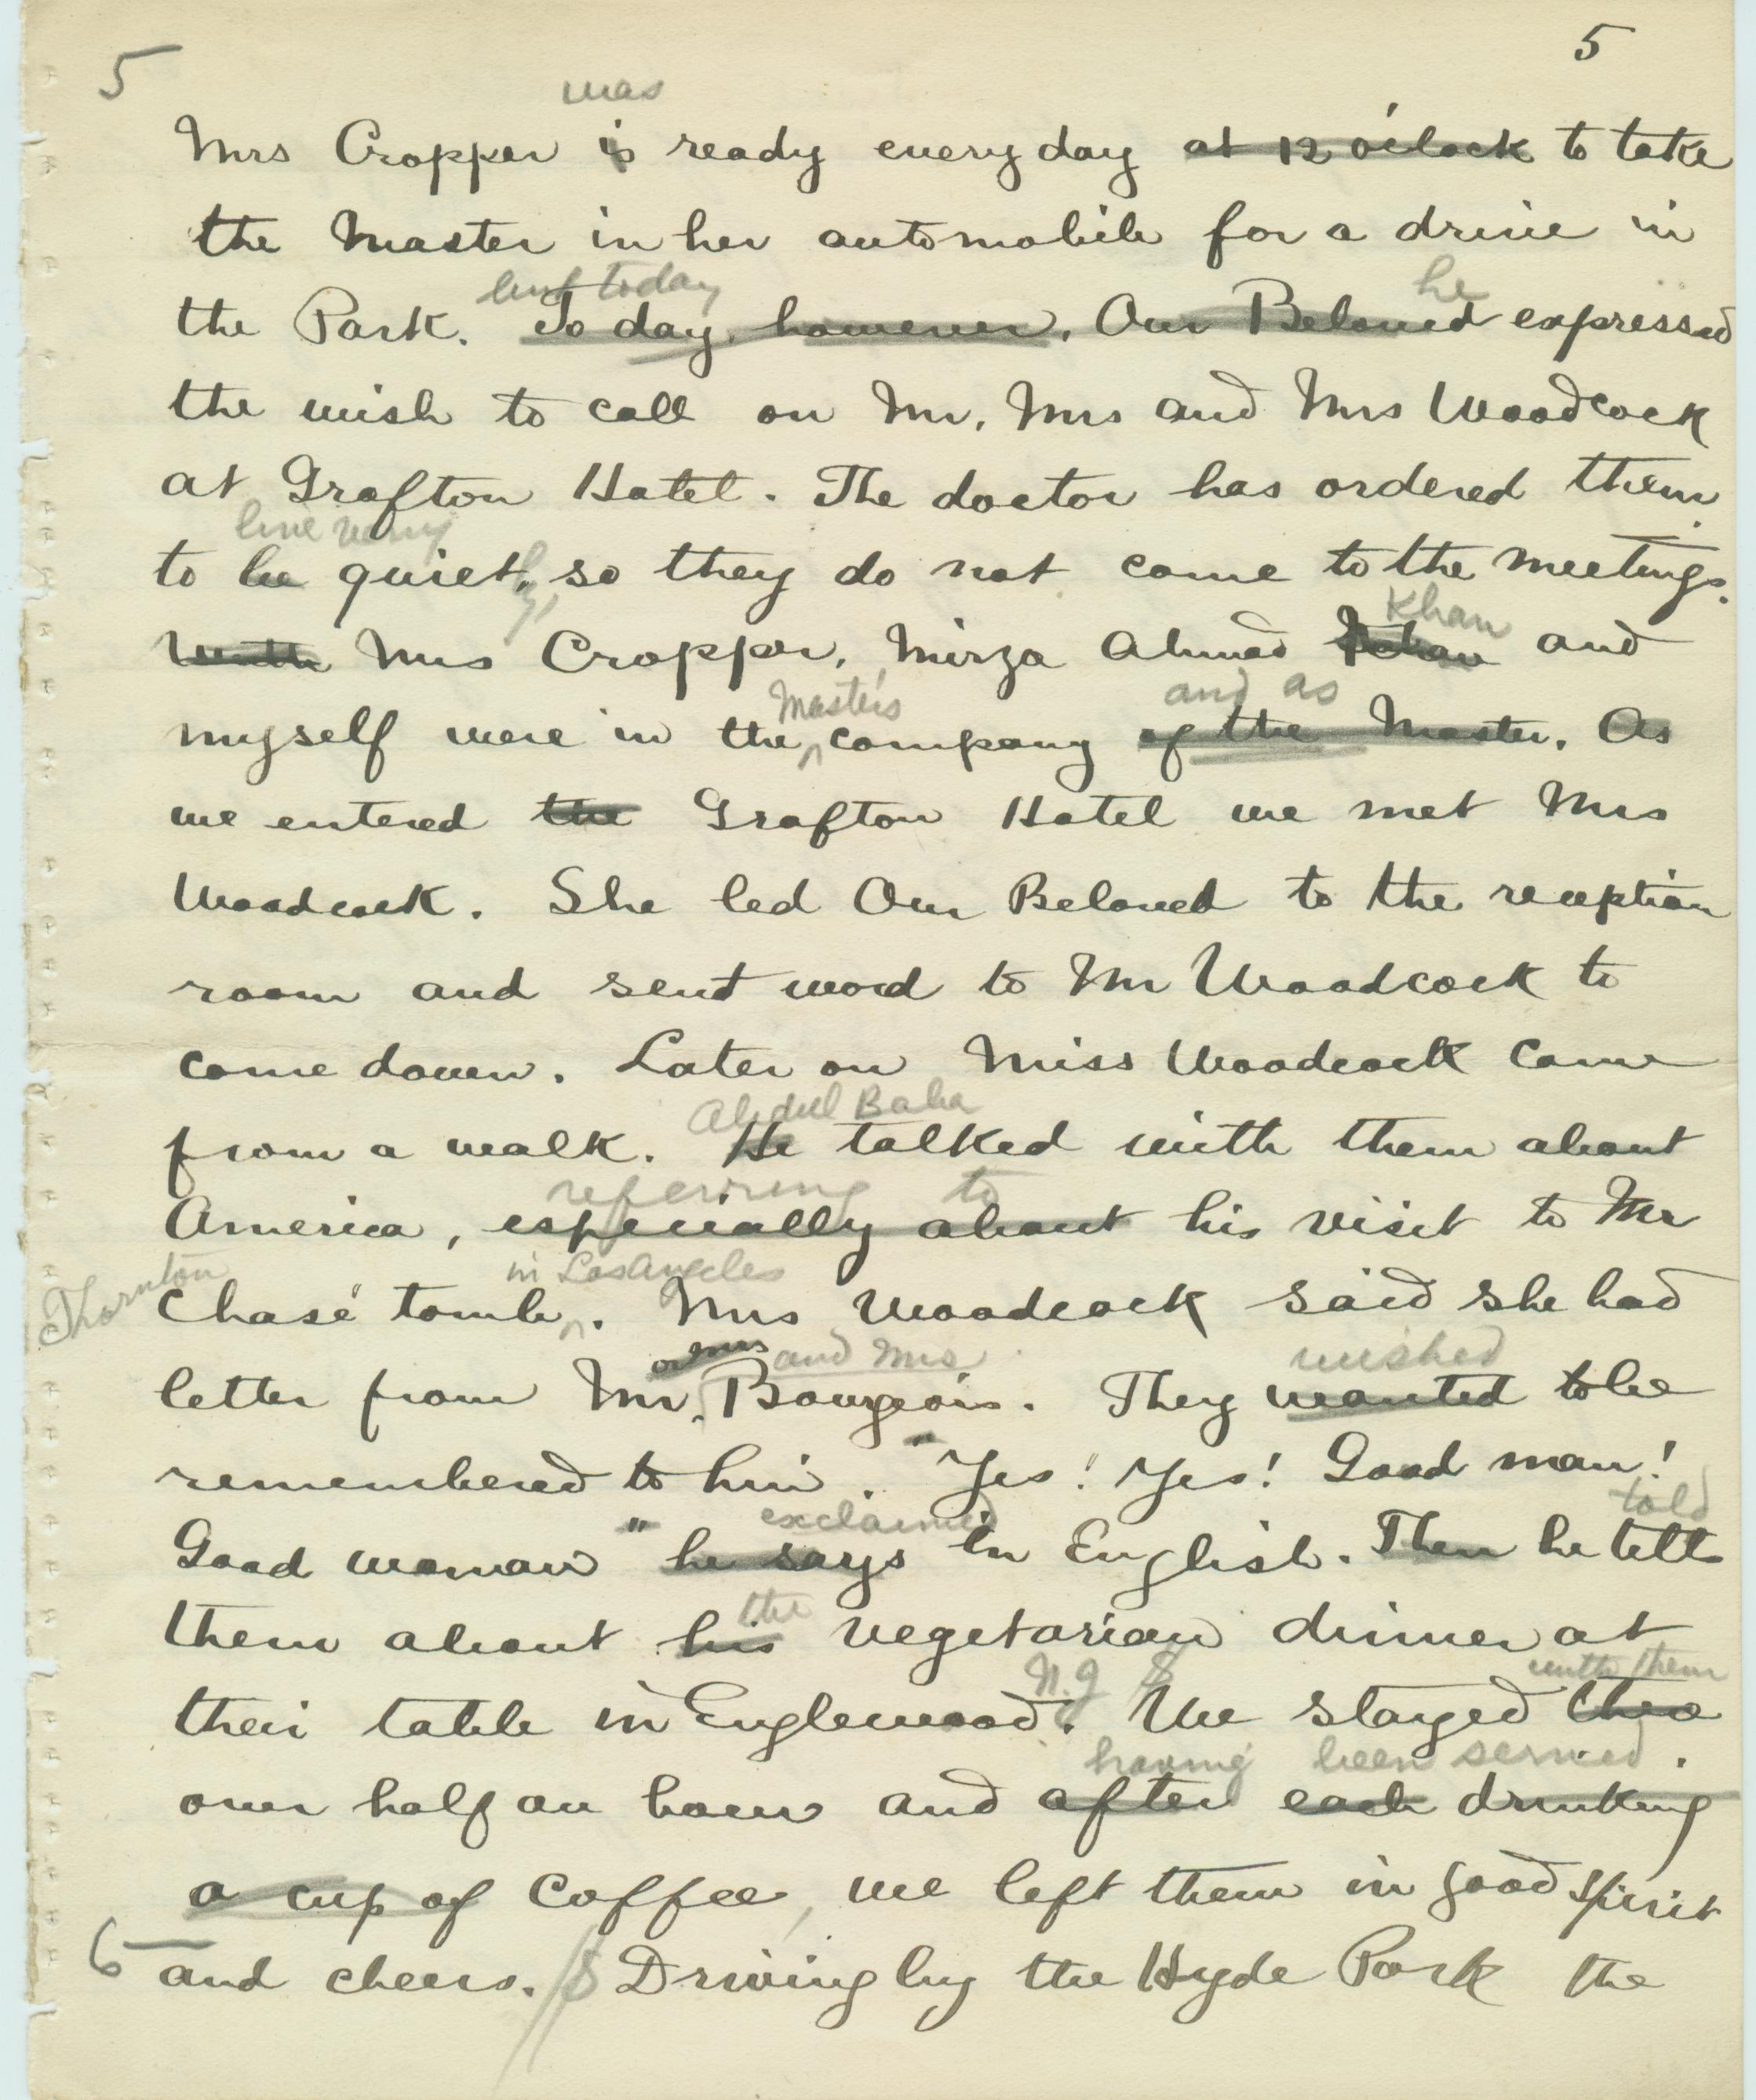 5 5
was
Mrs Cropper is ready every day at 12 o'clock to take
the Master in her automobile for a drive in
but today he
the Park. To day, however, Our Beloved expressed
the wish to call on Mr, Mrs and Mrs Woodcock
at Grafton Hotel. The doctor has ordered them
live very
to be quiet, ly, so they do not come to the meetings.
Khan
With Mrs Cropper, Mirza Ahmad Khan and
Master's and as
myself were in the company of the Master. As
we entered the Grafton Hotel we met Mrs
Woodcock. She led Our Beloved to the reception
room and sent word to Mr Woodcock to
come down. Later on Miss Woodcock came
Abdul Baha
from a walk. He talked with them about
referring to
America, especially about his visit to Mr
Thornton in Los Angeles
Chase' tomb. Mrs Woodcock said she had
or Mrs and Mrs wished
letter from Mr. Bourgeois. They wanted to be
remembered to him. "Yes! Yes! Good man!
exclaimed told
Good woman" he says in English. Then he tells
the
them about his vegetarian dinner at
N.J with them
their table in Englewood. We stayed there
having been served.
over half an hour and after each drinking
a cup of coffee, we left them in good spirit
6 and cheers. Driving by the Hyde Park the